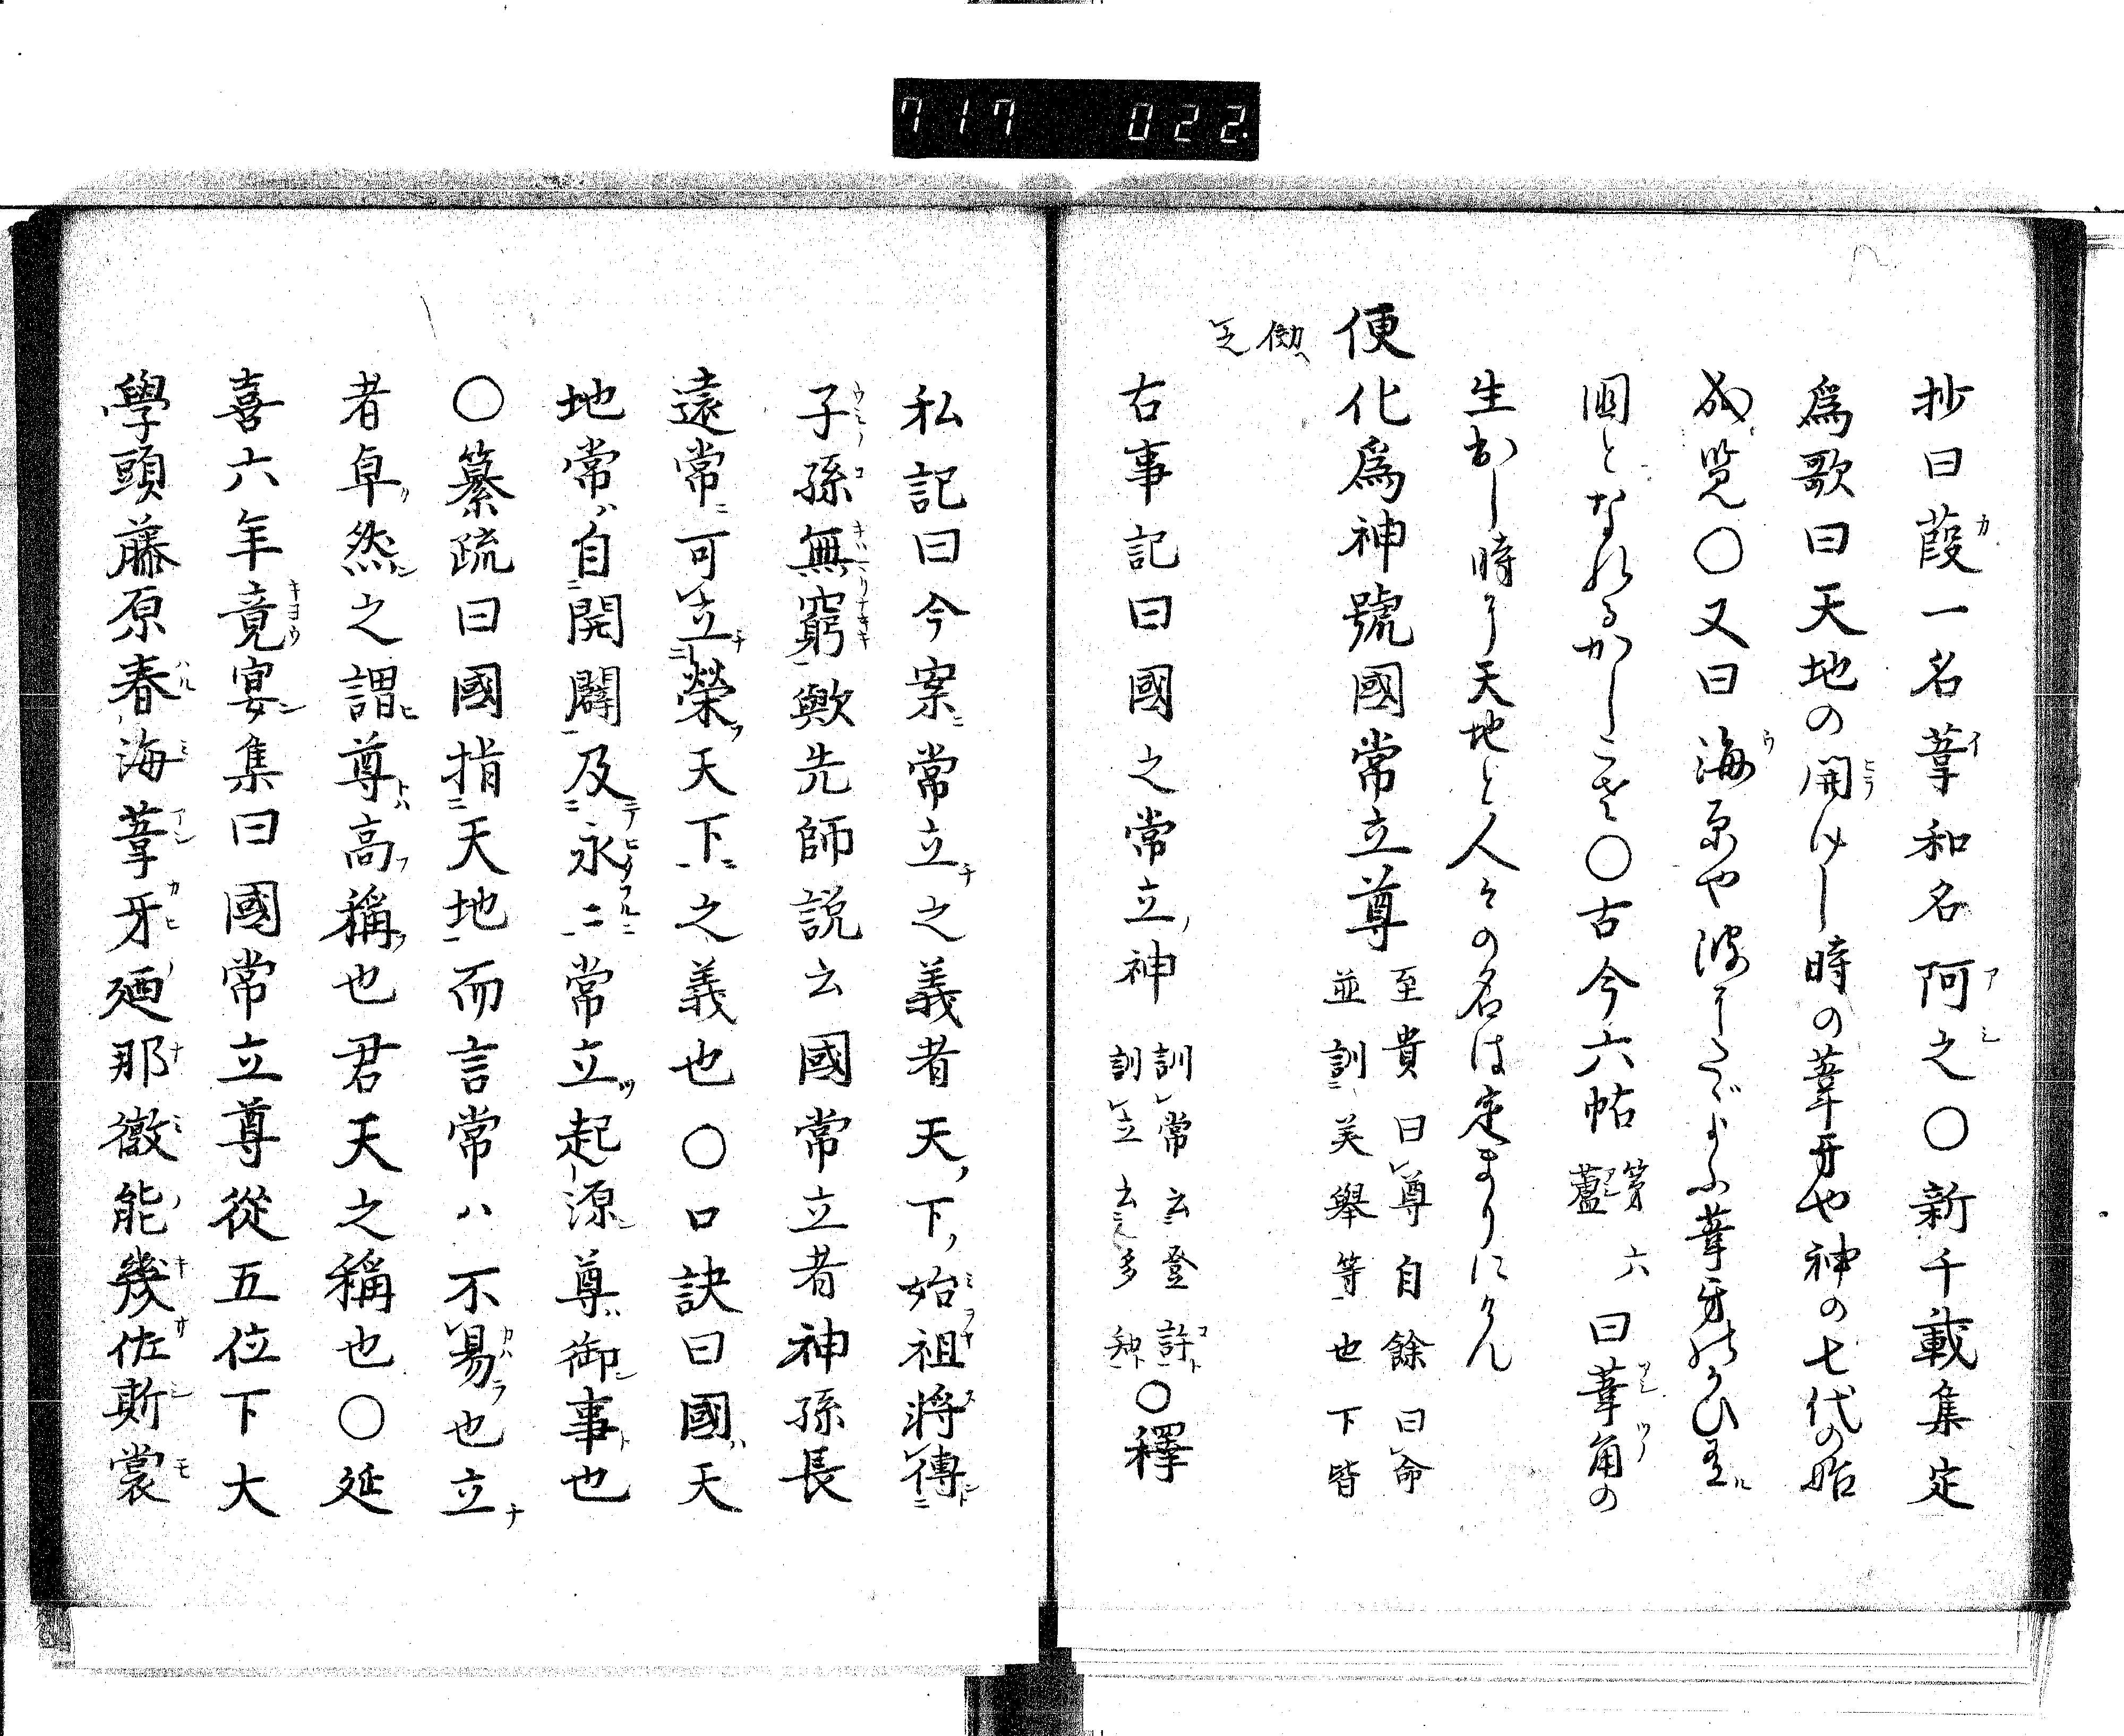 717 022
抄曰葭一名葦和名阿之〇新千載集定
為歌曰天地の開けし時の葦牙や神の七代の始
成覧〇又曰海原や波にたゞよふ葦牙のかひ
國となれるかしこさ〇古今六帖第六蘆曰葦角の
生出し時に天地と人との名は定まりにけん
便化為神號國常立尊至貴曰尊自餘曰命並訓美擧等也下皆
古事記曰國之常立神訓常云登許訓立云多知〇釋
私記曰今案常立之義者天下始祖將傳
子孫無窮歟先師説云國常立者神孫長
遠常可立榮天下之義也〇口訣曰國天
地常自開闢及永ニ常立起源尊御事也
〇纂疏曰國指天地而言常ハ不易也立
者卓然之謂尊高稱也君天之稱也〇延
喜六年竟宴集曰國常立尊從五位下大
學頭藤原春海葦牙廼那徵能幾佐斯裳